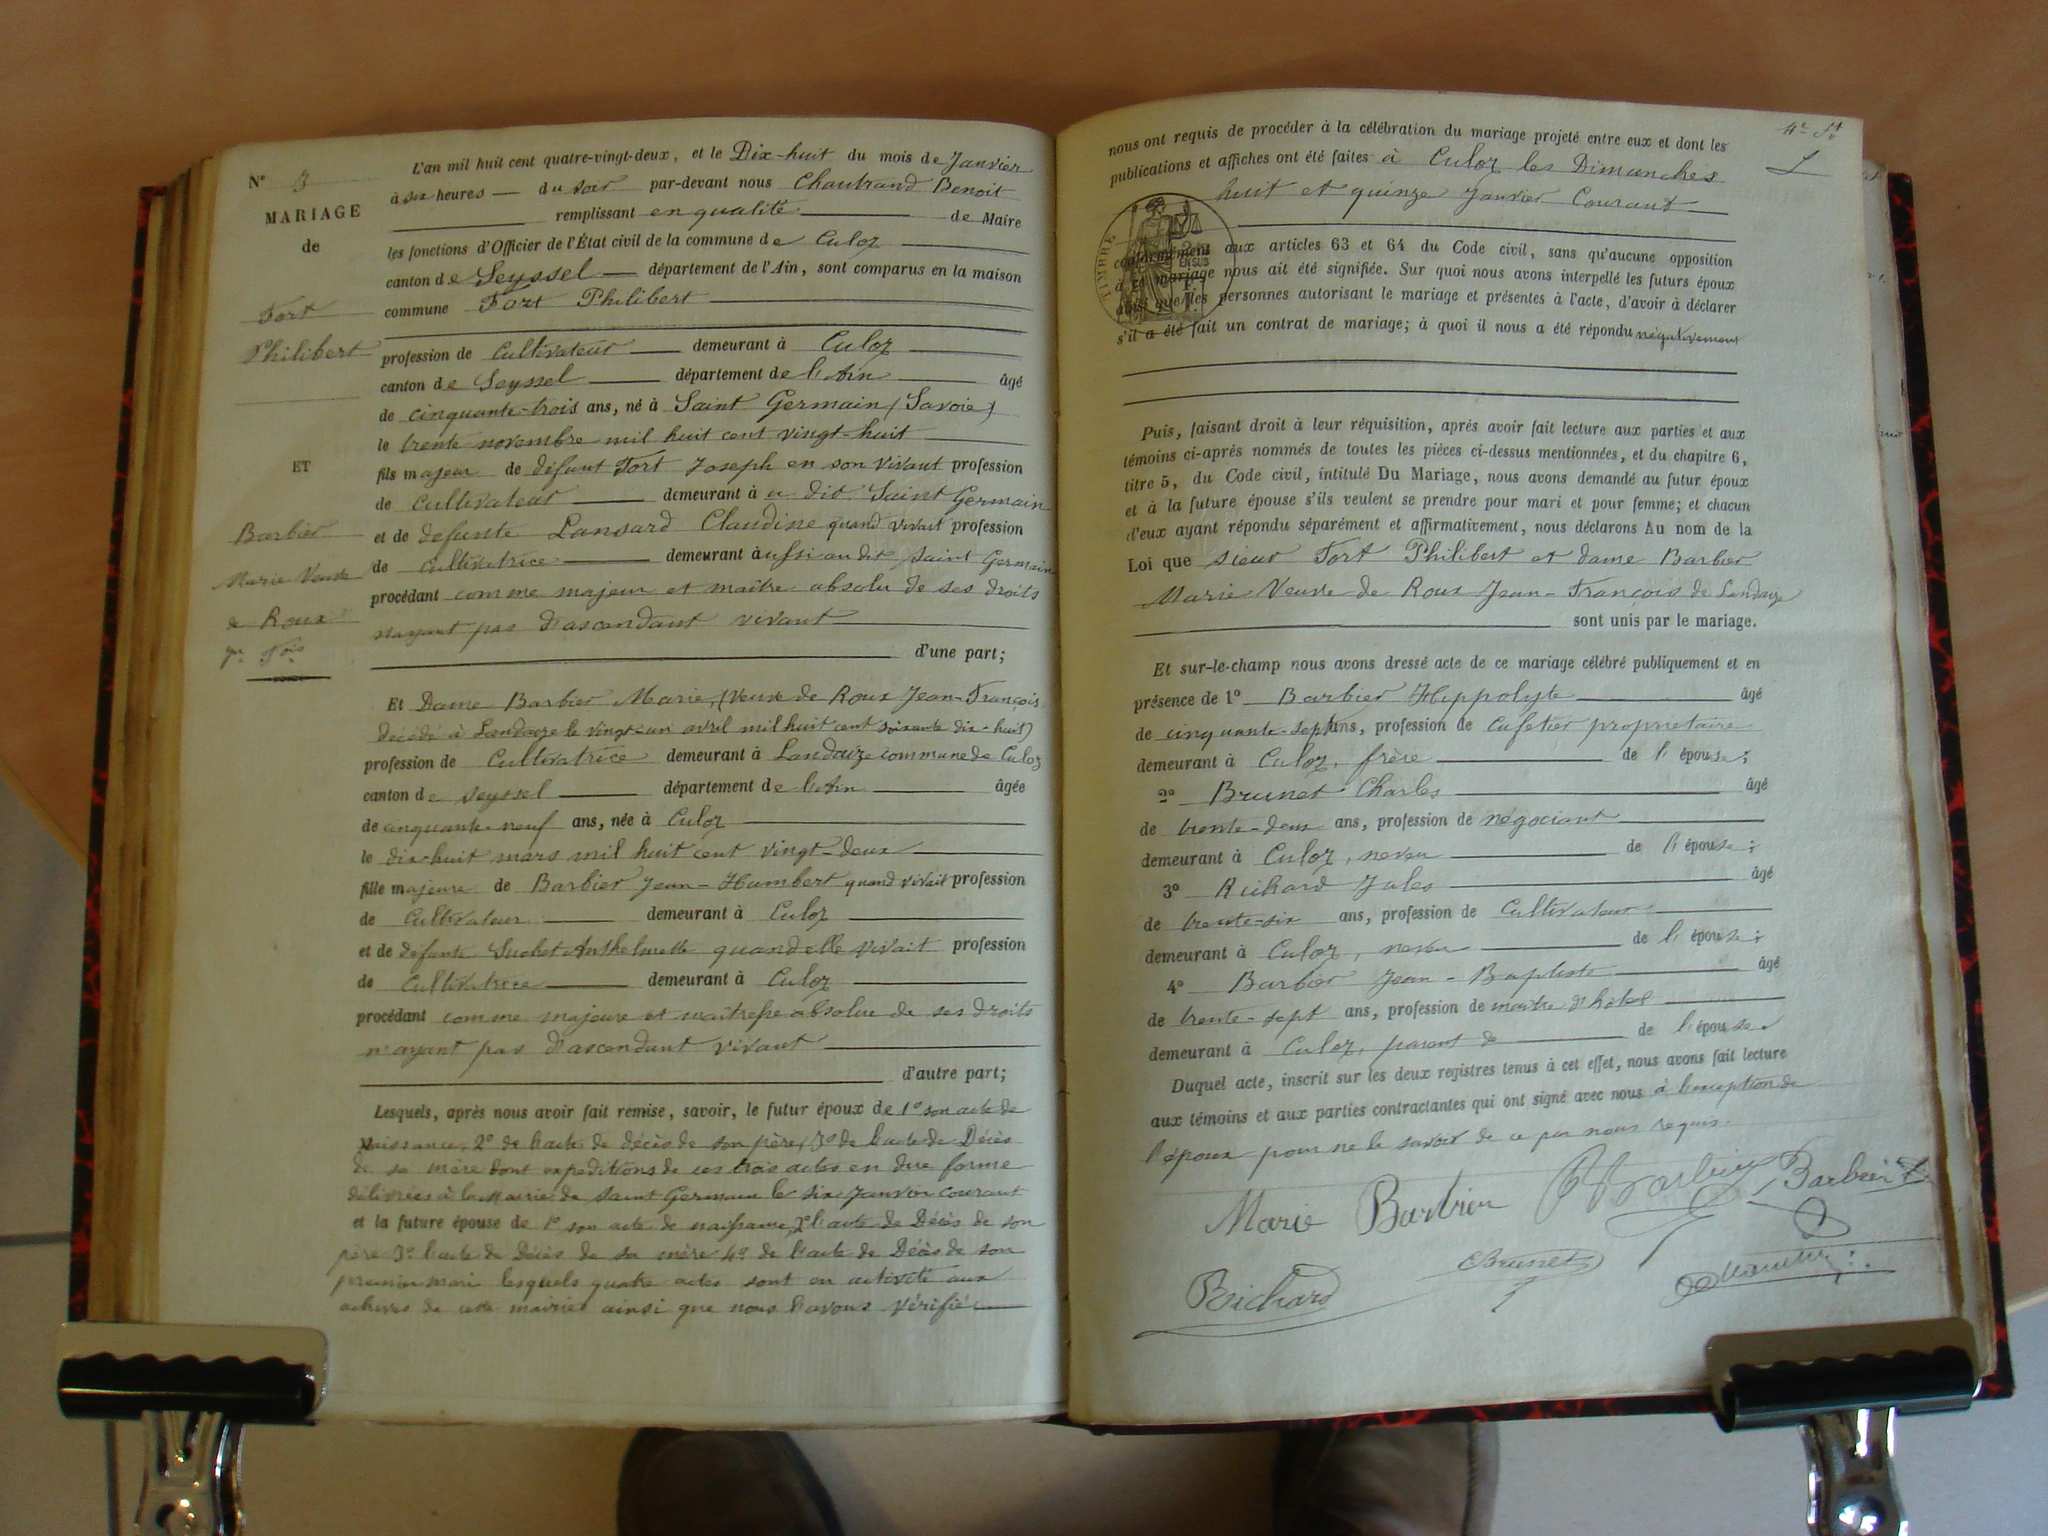 N° 3
MARIAGE
de
Fort
Philibert
ET
Barbier
Marie Veuve
de Roux
L'an mil huit cent quatre-vingt-deux, et le Dix-huit du mois de Janvier
à six heures du soir par-devant nous Chautrand Benoit
remplissant en qualité de Maire
les fonctions d'Officier de l'État civil de la commune de Culoz
canton de Seyssel département de l'Ain, sont comparus en la maison
commune Fort Philibert
profession de Cultivateur demeurant à Culoz
canton de Seyssel département de l'Ain âgé
de cinquante-trois ans, né à Saint Germain (Savoie)
le trente novembre mil huit cent vingt-huit
fils majeur de défunt Fort Joseph en son vivant profession
de Cultivateur demeurant à dit Saint Germain
et de défunte Lansard Claudine quand vivait profession
de Cultivatrice demeurant aussi au dit Saint Germain
procédant comme majeur et maître absolu de ses droits
n'ayant pas d'ascendant vivant
d'une part;
Et Dame Barbier Marie, (Veuve de Roux Jean-François
décédé à Landaize le vingt-un avril mil huit cent soixante dix-huit)
profession de Cultivatrice demeurant à Landaize commune de Culoz
canton de Seyssel département de l'Ain âgée
de cinquante-neuf ans, née à Culoz
le dix-huit mars mil huit cent vingt-deux
fille majeure de Barbier Jean-Humbert quand vivait profession
de Cultivateur demeurant à Culoz
et de défunte Suchet Anthelmette quand elle vivait profession
de Cultivatrice demeurant à Culoz
procédant comme majeure et maîtresse absolue de ses droits
n'ayant pas d'ascendant vivant
d'autre part;
Lesquels, après nous avoir fait remise, savoir, le futur époux de 1° son acte de
naissance, 2° de l'acte de décès de son père, 3° de l'acte de Décès
de sa mère dont expéditions de ces trois actes en due forme
délivrées à la Mairie de Saint Germain le six Janvier courant
et la future épouse de 1° son acte de naissance, 2° l'acte de Décès de son
père 3° l'acte de Décès de sa mère 4° de l'acte de Décès de son
premier mari lesquels quatre actes sont en activité aux
achives de cette mairie ainsi que nous l'avons vérifié
nous ont requis de procéder à la célébration du mariage projeté entre eux et dont les
publications et affiches ont été faites à Culoz les Dimanches
huit et quinze Janvier Courant
TIMBRE
conformément aux articles 63 et 64 du Code civil, sans qu'aucune opposition
à ce mariage nous ait été signifiée. Sur quoi nous avons interpellé les futurs époux
ainsi que les personnes autorisant le mariage et présentes à l'acte, d'avoir à déclarer
s'il a été fait un contrat de mariage; à quoi il nous a été répondu négativement
Puis, faisant droit à leur réquisition, après avoir fait lecture aux parties et aux
témoins ci-après nommés de toutes les pièces ci-dessus mentionnées, et du chapitre 6,
titre 5, du Code civil, intitulé Du Mariage, nous avons demandé au futur époux
et à la future épouse s'ils veulent se prendre pour mari et pour femme; et chacun
d'eux ayant répondu séparément et affirmativement, nous déclarons Au nom de la
Loi que sieur Fort Philibert et dame Barbier
Marie Veuve de Roux Jean-François de Landaize
sont unis par le mariage.
Et sur-le-champ nous avons dressé acte de ce mariage célébré publiquement et en
présence de 1° Barbier Hippolyte âgé
de cinquante-sept ans, profession de Cafetier propriétaire
demeurant à Culoz, frère de l'épouse;
2° Brunet Charles âgé
de trente-deux ans, profession de négociant
demeurant à Culoz, neveu de l'épouse;
3° Richard Jules âgé
de trente-six ans, profession de Cultivateur
demeurant à Culoz, neveu de l'épouse;
4° Barbier Jean-Baptiste âgé
de trente-sept ans, profession de maître d'hôtel
demeurant à Culoz, parent de de l'épouse.
Duquel acte, inscrit sur les deux registres tenus à cet effet, nous avons fait lecture
aux témoins et aux parties contractantes qui ont signé avec nous à l'exception de
l'époux pour ne le savoir de ce par nous requis.
Marie Barbier Barbier Barbier
Richard CBrunet